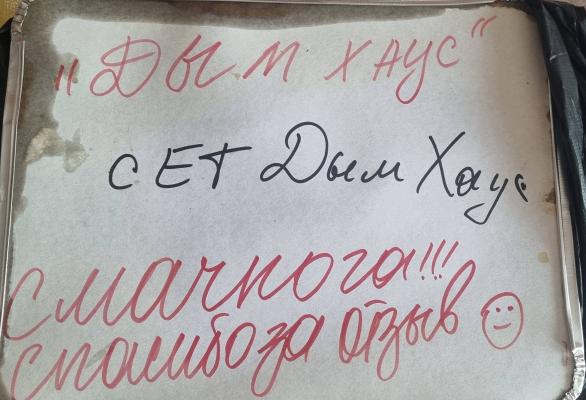 "ДЫМ ХАУС"
СЕТ Дым Хаус
смачного!!!
спасибо за отзыв